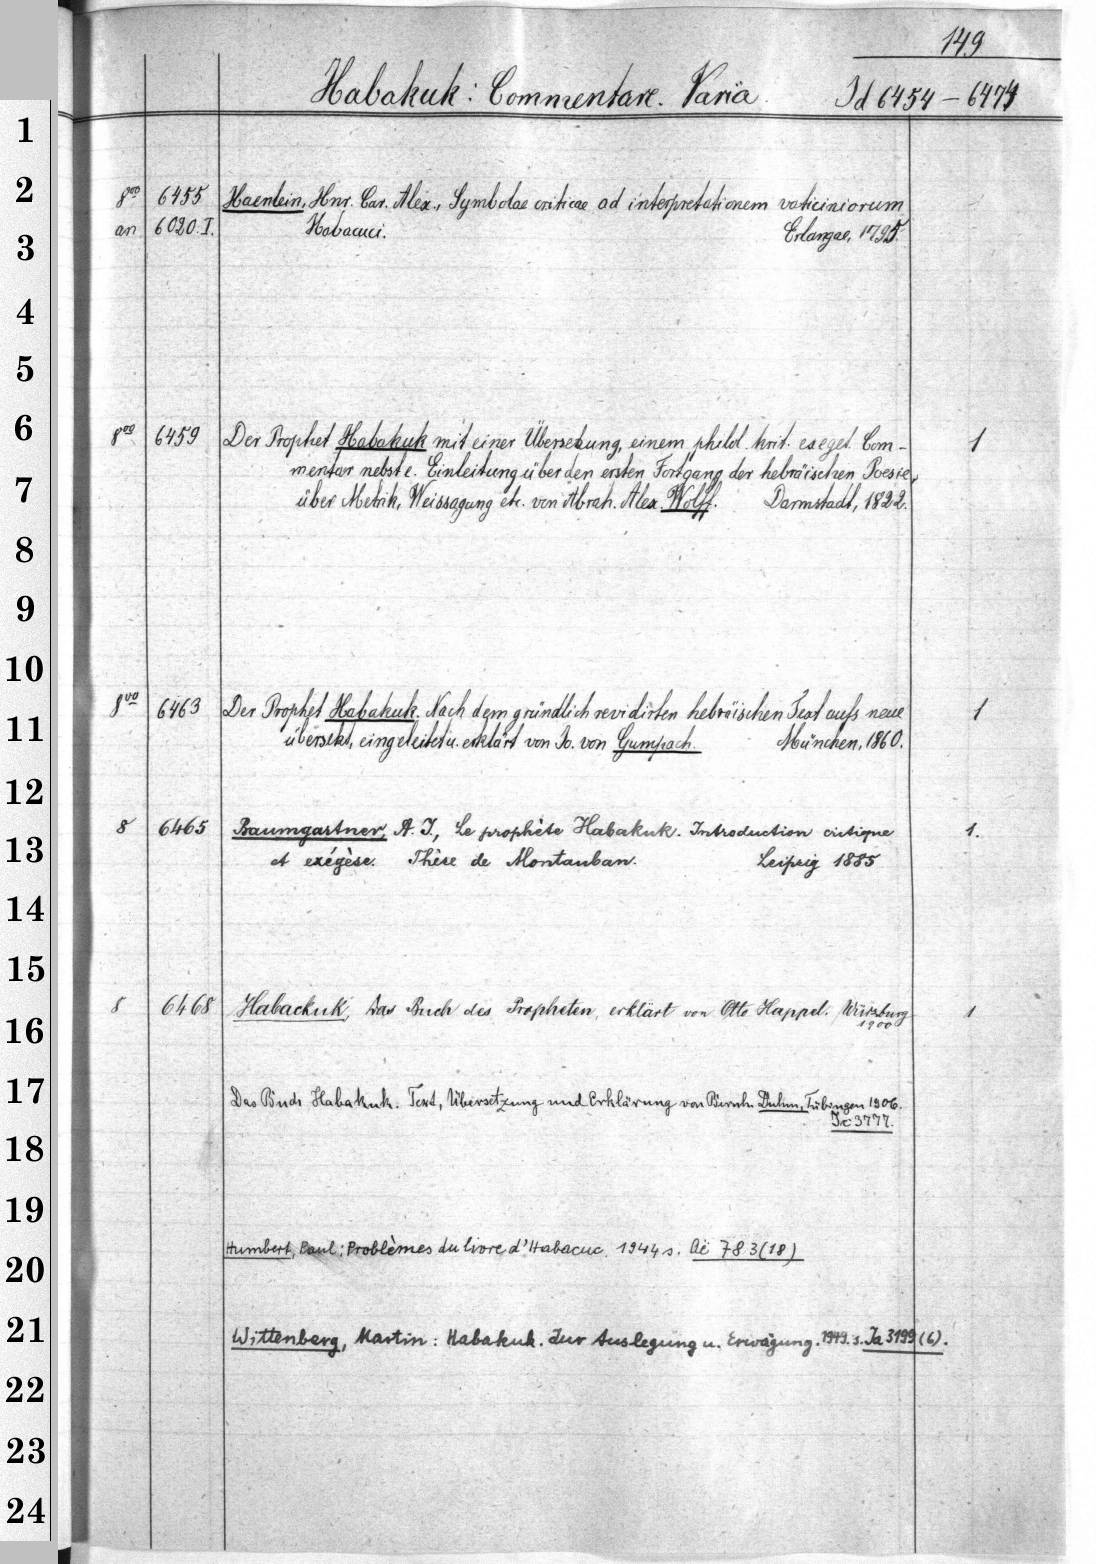 149
Habakuk: Commentare. Varia Id 6454 – 6474
8vo 6455 Haenlein, Hnr. Car. Alex., Symbolae criticae ad interpretationem vaticiniorum
an 6020.I. Habacuci. Erlangae, 1795.
8vo 6459 Der Prophet Habakuk mit einer Übersetzung, einem philol. krit. exeget. Com-
1
mentar nebst e. Einleitung über den ersten Fortgang der hebräischen Poesie,
über Metrik, Weissagung etc. von Abrah. Alex. Wolff. Darmstadt, 1822.
8vo 6463 Der Prophet Habakuk. Nach dem gründlich revidirten hebräischen Text aufs neue
1
übersetzt, eingeleitet u. erklärt von Jo. von Gumpach. München, 1860.
8 6465 Baumgartner, A. J., Le prophète Habakuk. Introduction critique
1.
et exégèse. Thèse de Montauban. Leipzig 1885
8 6468 Habackuk, Das Buch des Propheten, erklärt von Otto Happel. Würzburg
1
1900
Das Buch Habakuk. Text, Übersetzung und Erklärung von Bernh. Duhm, Tübingen 1906.
Ic 3777.
Humbert, Paul: Problèmes du livre d'Habacuc. 1944 s. Aë 783(18)
Wittenberg, Martin: Habakuk. Zur Auslegung u. Erwägung. 1949. s. Ia 3199 (6).
1
2
3
4
5
6
7
8
9
10
11
12
13
14
15
16
17
18
19
20
21
22
23
24